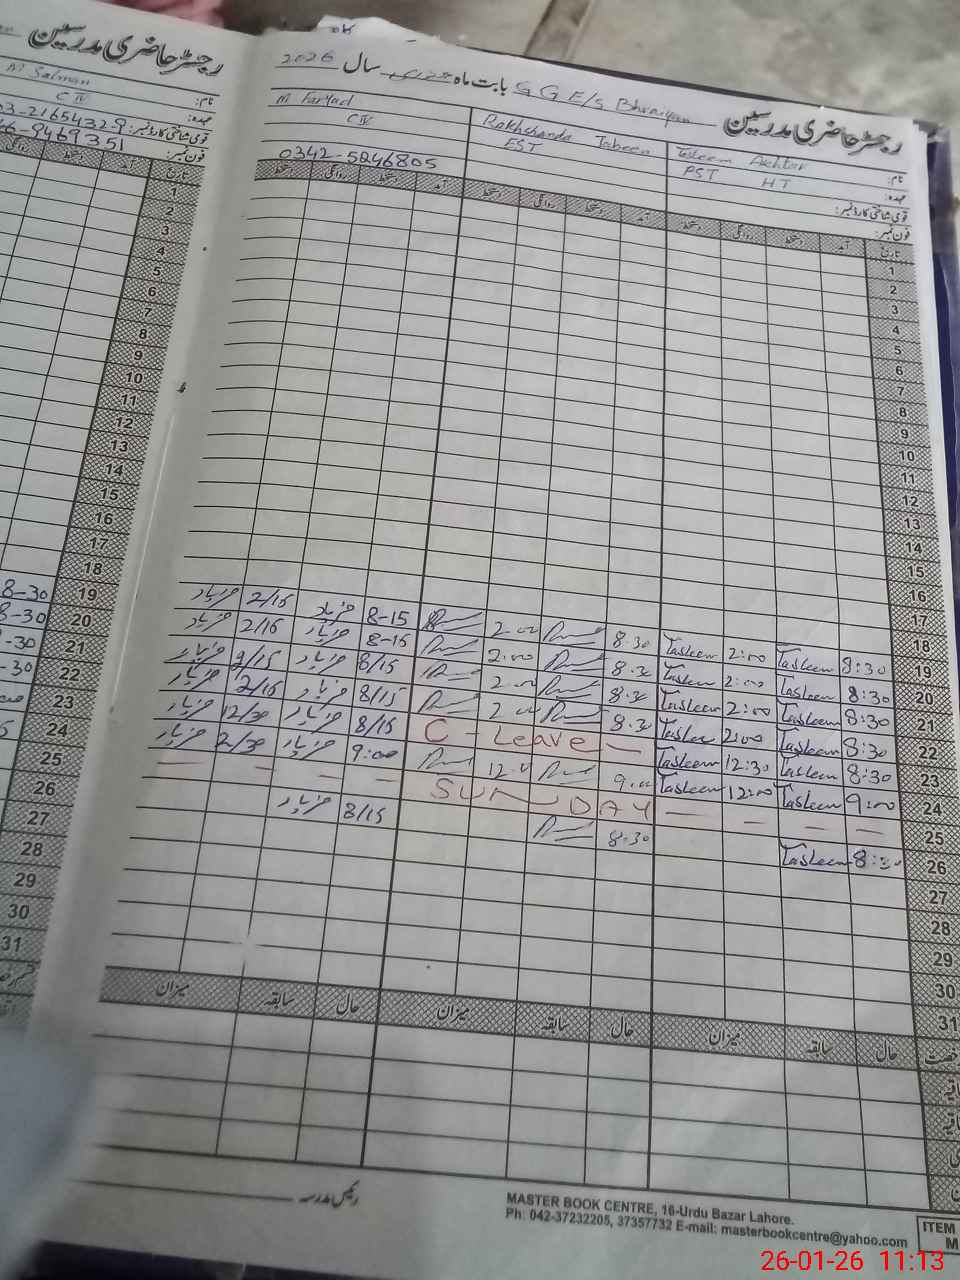 رجسٹر حاضری مدرسین
M Salman
نام:
C IV
عہدہ:
03-2165432-9
قومی شناختی کارڈ نمبر:
46-9469351
فون نمبر:
روانگی دستخط آمد تاریخ
1
2
3
4
5
6
7
8
9
10
11
12
13
14
15
16
17
18
8-30 19
8-30 20
-30 21
-30 22
23
24
25
26
27
28
29
30
31
رجسٹر حاضری مدرسین
G G E/S Bhraiyan
بابت ماہ
سال 2026
نام: Tasleem Akhtar Rakhshanda Jabeen M Faryad
عہدہ: PST HT EST C IV
قومی شناختی کارڈ نمبر:
فون نمبر: 0342-5246805
تاریخ آمد دستخط روانگی دستخط آمد دستخط روانگی دستخط آمد دستخط روانگی دستخط
1
2
3
4
5
6
7
8
9
10
11
12
13
14
15
16
17
18
19 8:30 Tasleem 2:00 Tasleem 8.30 2.00 8-15 فریاد 2/15 فریاد
20 8:30 Tasleem 2:00 Tasleem 8.30 2:00 8-15 فریاد 2/15 فریاد
21 8:30 Tasleem 2:00 Tasleem 8.30 2.00 8/15 فریاد 2/15 فریاد
22 8:30 Tasleem 2:00 Taslee 8.30 2.00 8/15 فریاد 2/15 فریاد
23 8:30 Tasleem 12:30 Tasleem C - Leave - 8/15 فریاد 12/30 فریاد
24 9:00 Tasleem 12:00 Tasleem 9.00 9:00 فریاد 2/30 فریاد
25 — — — — SUNDAY — — — —
26 8:30 Tasleem 8.30 8/15 فریاد
27
28
29
30
31
حال سابقہ میزان حال سابقہ میزان حال سابقہ میزان
رئیس مدرسہ
MASTER BOOK CENTRE, 16-Urdu Bazar Lahore.
Ph: 042-37232205, 37357732 E-mail: masterbookcentre@yahoo.com
ITEM
M
26-01-26 11:13